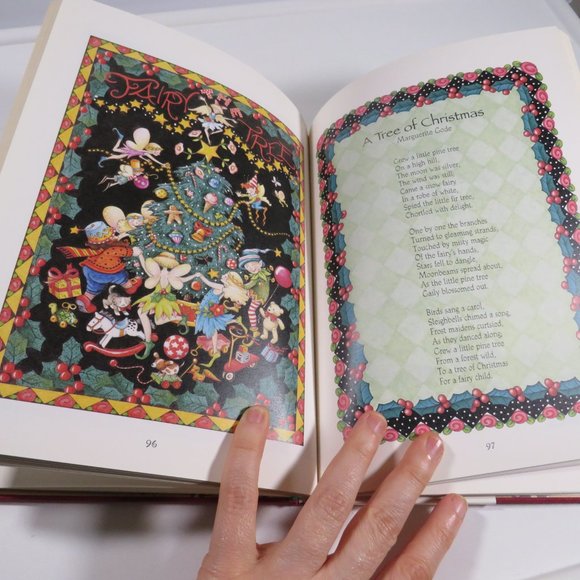 FAIRY
TREE
96
A Tree of Christmas
Marguerite Gode
Grew a little pine tree
On a high hill,
The moon was silver,
The wind was still.
Came a snow fairy
In a robe of white,
Spied the little fir tree,
Chortled with delight.
One by one the branches
Turned to gleaming strands,
Touched by misty magic
Of the fairy's hands.
Stars fell to dangle,
Moonbeams spread about,
As the little pine tree
Gaily blossomed out.
Birds sang a carol,
Sleighbells chimed a song,
Frost maidens curtsied,
As they danced along.
Grew a little pine tree
From a forest wild,
To a tree of Christmas
For a fairy child.
97